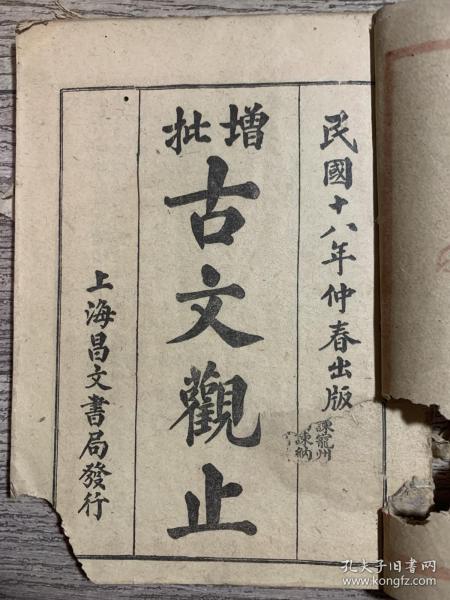 民國十八年仲春出版
增批
古文觀止
上海昌文書局發行
諫寵州
諫納
孔夫子旧书网
www.kongfz.com